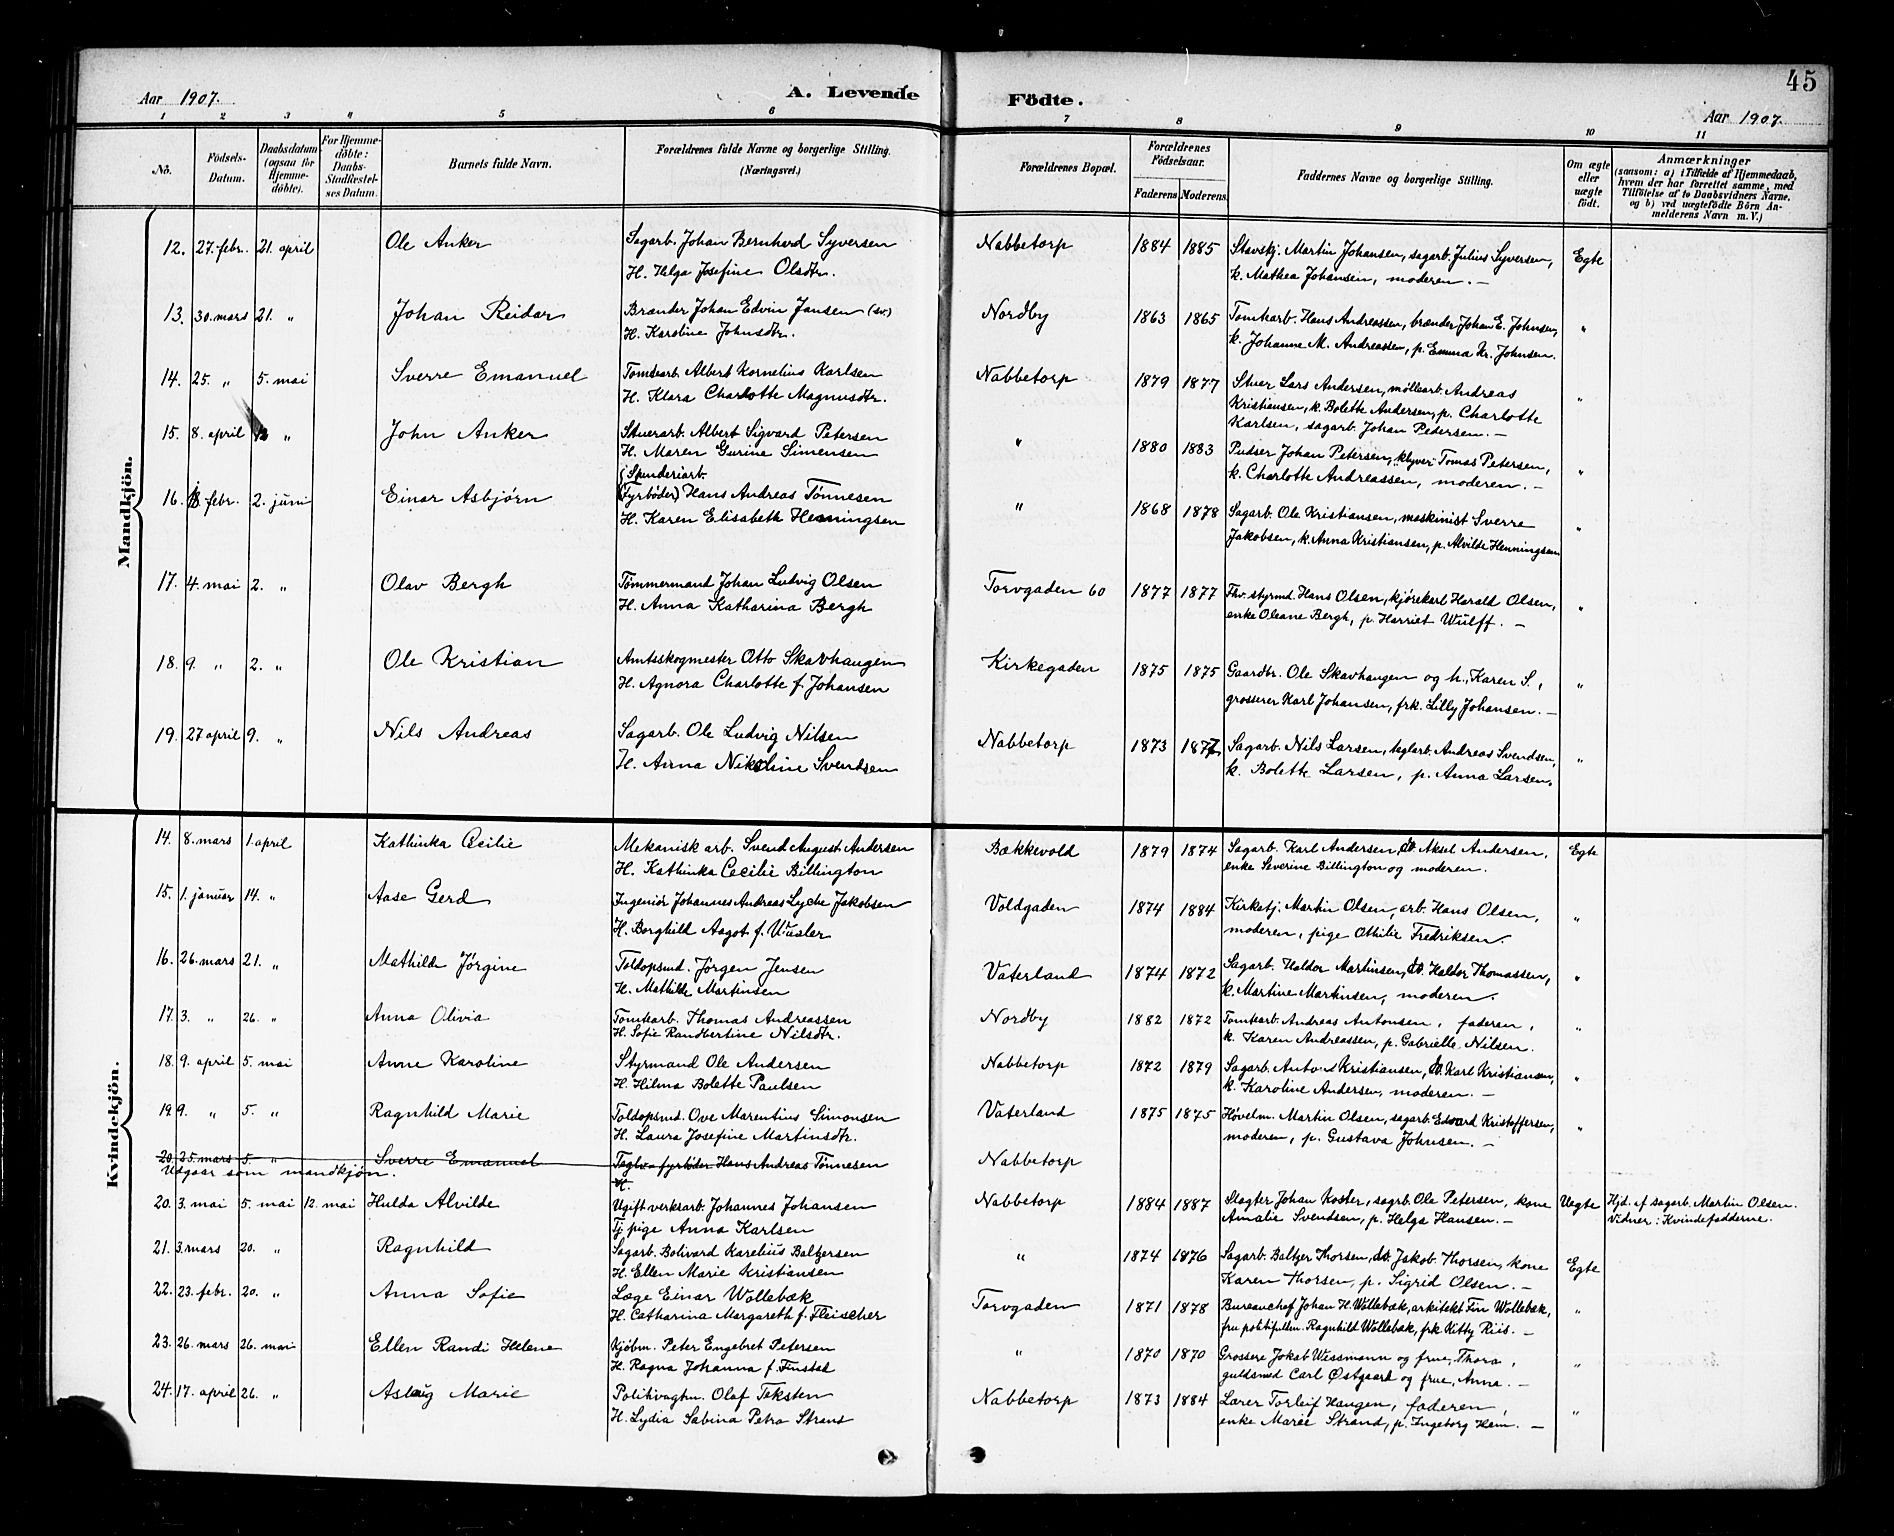 45
Aar 1907. A. Levende Födte. Aar 1907.
1 2 3 4 5 6 7 8 9 10 11
No. Födsels-Datum. Daabsdatum (ogsaa for Hjemmedöbte). For Hjemmedöbte: Daabs-Stadfæstelses Datum. Barnets fulde Navn. Forældrenes fulde Navne og borgerlige Stilling. (Næringsvei.) Forældrenes Bopæl. Forældrenes Födselsaar. Faderens Moderens. Faddernes Navne og borgerlige Stilling. Om ægte eller uægte födt. Anmærkninger (saasom: a) i Tilfælde af Hjemmedaab, hvem der har forrettet samme, med Tilföielse af to Daabsvidners Navne, og b) ved uægtefödte Börn Anmelderens Navn m. V.)
Mandkjön.
12. 27. febr. 21. april Ole Anker Sagarb. Johan Bernhard Syversen Nabbetorp 1884 1885 Stavskj. Martin Johansen, sagarb. Julius Syversen, Egte
H. Helga Josefine Olsdtr. k. Mathea Johansen, moderen. —
13. 30. mars 21. " Johan Reidar Brænder Johan Edvin Jansen (sv.) Nordby 1863 1865 Tomtarb. Hans Andreassen, brænder Johan E. Johnsen, "
H. Karoline Johnsdtr. k. Johanne M. Andreassen, p. Emma Kr. Johnsen.
14. 25. " 5. mai Sverre Emanuel Tomtearb. Albert Kornelius Karlsen Nabbetorp 1879 1877 Stuer Lars Andersen, møllearb. Andreas "
H. Klara Charlotte Magnusdtr. Kristiansen, k. Bolette Andersen, p. Charlotte
Karlsen, sagarb. Johan Pedersen. —
15. 8. april " John Anker Stuerarb. Albert Sigvard Petersen " 1880 1883 Pudser Johan Petersen, kløver Tomas Petersen, "
H. Maren Gurine Simensen k. Charlotte Andreassen, moderen. —
16. febr. 2. juni Einar Asbjørn (Spinderiarb.
(Fyrbøder) Hans Andreas Tønnesen " 1868 1878 Sagarb. Ole Kristiansen, maskinist Sverre "
H. Karen Elisabeth Henningsen Jakobsen, k. Anna Kristiansen, p. Alvilde Henningsen
17. 4. mai 2. " Olav Bergh Tømmermand Johan Ludvig Olsen Torvgaden 60 1877 1877 Fhv. styrmd. Hans Olsen, kjørekarl Harald Olsen, "
H. Anna Katharina Bergh enke Oleane Bergh, p. Harriet Wulff. —
18. 9. " 2. " Ole Kristian Amtsskogmester Otto Skavhaugen Kirkegaden 1875 1875 Gaardbr. Ole Skavhaugen og h., Karen S., "
H. Agnora Charlotte f. Johansen grosserer Karl Johansen, frk. Lilly Johansen. —
19. 27 april 9. " Nils Andreas Sagarb. Ole Ludvig Nilsen Nabbetorp 1873 1877 Sagarb. Nils Larsen, teglarb. Andreas Svendsen, "
H. Anna Nikoline Svendsen k. Bolette Larsen, p. Anna Larsen.
Kvindekjön.
14. 8. mars 1. april Kathinka Cecilie Mekanisk arb. Svend August Andersen Bækkevold 1879 1874 Sagarb. Karl Andersen, do. Aksel Andersen, Egte
H. Kathinka Cecilie Billington enke Severine Billington og moderen.
15. 1. januar 14. " Aase Gerd Ingeniør Johannes Andreas Lyche Jakobsen Voldgaden 1874 1884 Kirketj. Martin Olsen, arb. Hans Olsen, "
H. Borghild Aagot f. moderen, pige Othilie Fredriksen.
16. 26. mars 21. " Mathilde Jørgine Toldopsmd. Jørgen Jensen Vaterland 1874 1872 Sagarb. Haldor Martinsen, do. Haldor Thomassen, "
H. Mathilde Martinsen k. Martine Martinsen, moderen.
17. 3. " 26. " Anna Olivia Tomtearb. Thomas Andreassen Nordby 1882 1872 Tomtearb. Andreas Antonsen, faderen, "
H. Sofie Randbertine Nilsdtr. k. Karen Andreassen, p. Gabrielle Nilsen.
18. 9. april 5. mai Anne Karoline Styrmand Ole Andersen Nabbetorp 1872 1879 Sagarb. Anton Kristiansen, do. Karl Kristiansen, "
H. Hilma Bolette Paulsen k. Karoline Andersen, moderen. —
19. 9. " 5. " Ragnhild Marie Toldopsmd. Ove Marentius Simonsen Vaterland 1875 1875 Høvelm. Martin Olsen, sagarb. Edvard Kristoffersen, "
H. Laura Josefine Martinsdtr. moderen, p. Gustava Johnsen. —
20. 25. mars 5. " Sverre Emanuel fyrbøder Hans Andreas Tønnesen Nabbetorp
Udgaar som mandkjøn. H.
20. 3. mai 5. mai 12. mai Hulda Alvilde Ugift verksarb. Johannes Johansen Nabbetorp 1884 1887 Slagter Johan Koster, sagrb. Ole Petersen, kone Uegte Hjd. af sagarb. Martin Olsen.
Tj. pige Anna Karlsen Amalie Svendsen, p. Helga Hansen. — Vidner: Kvindefadderne.
21. 3. mars 20. " Ragnhild Sagarb. Bolivard Karelius Baltzersen " 1874 1876 Sagarb. Baltzer Thorsen, do. Jakob Thorsen, kone Egte
H. Ellen Marie Kristiansen Karen Thorsen, p. Sigrid Olsen. —
22. 23. febr. 20. " Anna Sofie Læge Einar Wollebæk Torvgaden 1871 1878 Bureauchef Johan H. Wollebæk, arkitekt Fin Wollebæk, "
H. Catharina Margareth f. Fleischer fru politifuldm. Ragnhild Wollebæk, frk Kitty Riis. —
23. 26. mars 26. mai Ellen Randi Helene Kjøbm. Peter Engebret Petersen " 1870 1870 Grossere Jakob Wessmann og frue, Thora, "
H. Ragna Johanna f. Finstad guldsmed Carl Østgaard og frue, Anna. —
24. 17. april 26. " Aslaug Marie Politivagtm. Olaf Teksten Nabbetorp 1873 1884 Lærer Torleif Haugen, faderen, "
H. Lydia Sabina Petra Strand enke Marie Strand, p. Ingeborg Hem. —